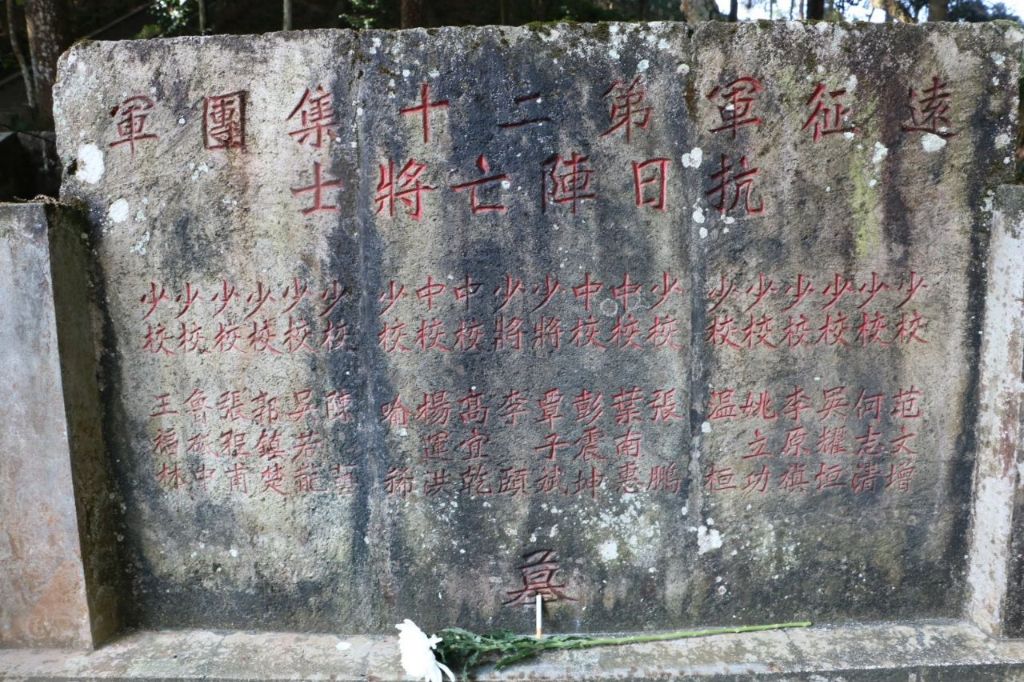 遠征軍第二十集團軍
抗日陣亡將士
少校 范文增
少校 何志清
少校 吳耀恒
少校 李原
少校 姚立功
少校 温桓
少校 張鵬
中校 葉南惠
中校 彭震坤
少將 覃子斌
少將 李頤
中校 髙宜乾
中校 楊運洪
少校 喻
少校 陳
少校 吳若龍
少校 郭鎮
少校 張聖甫
少校 魯
少校 王福林
墓